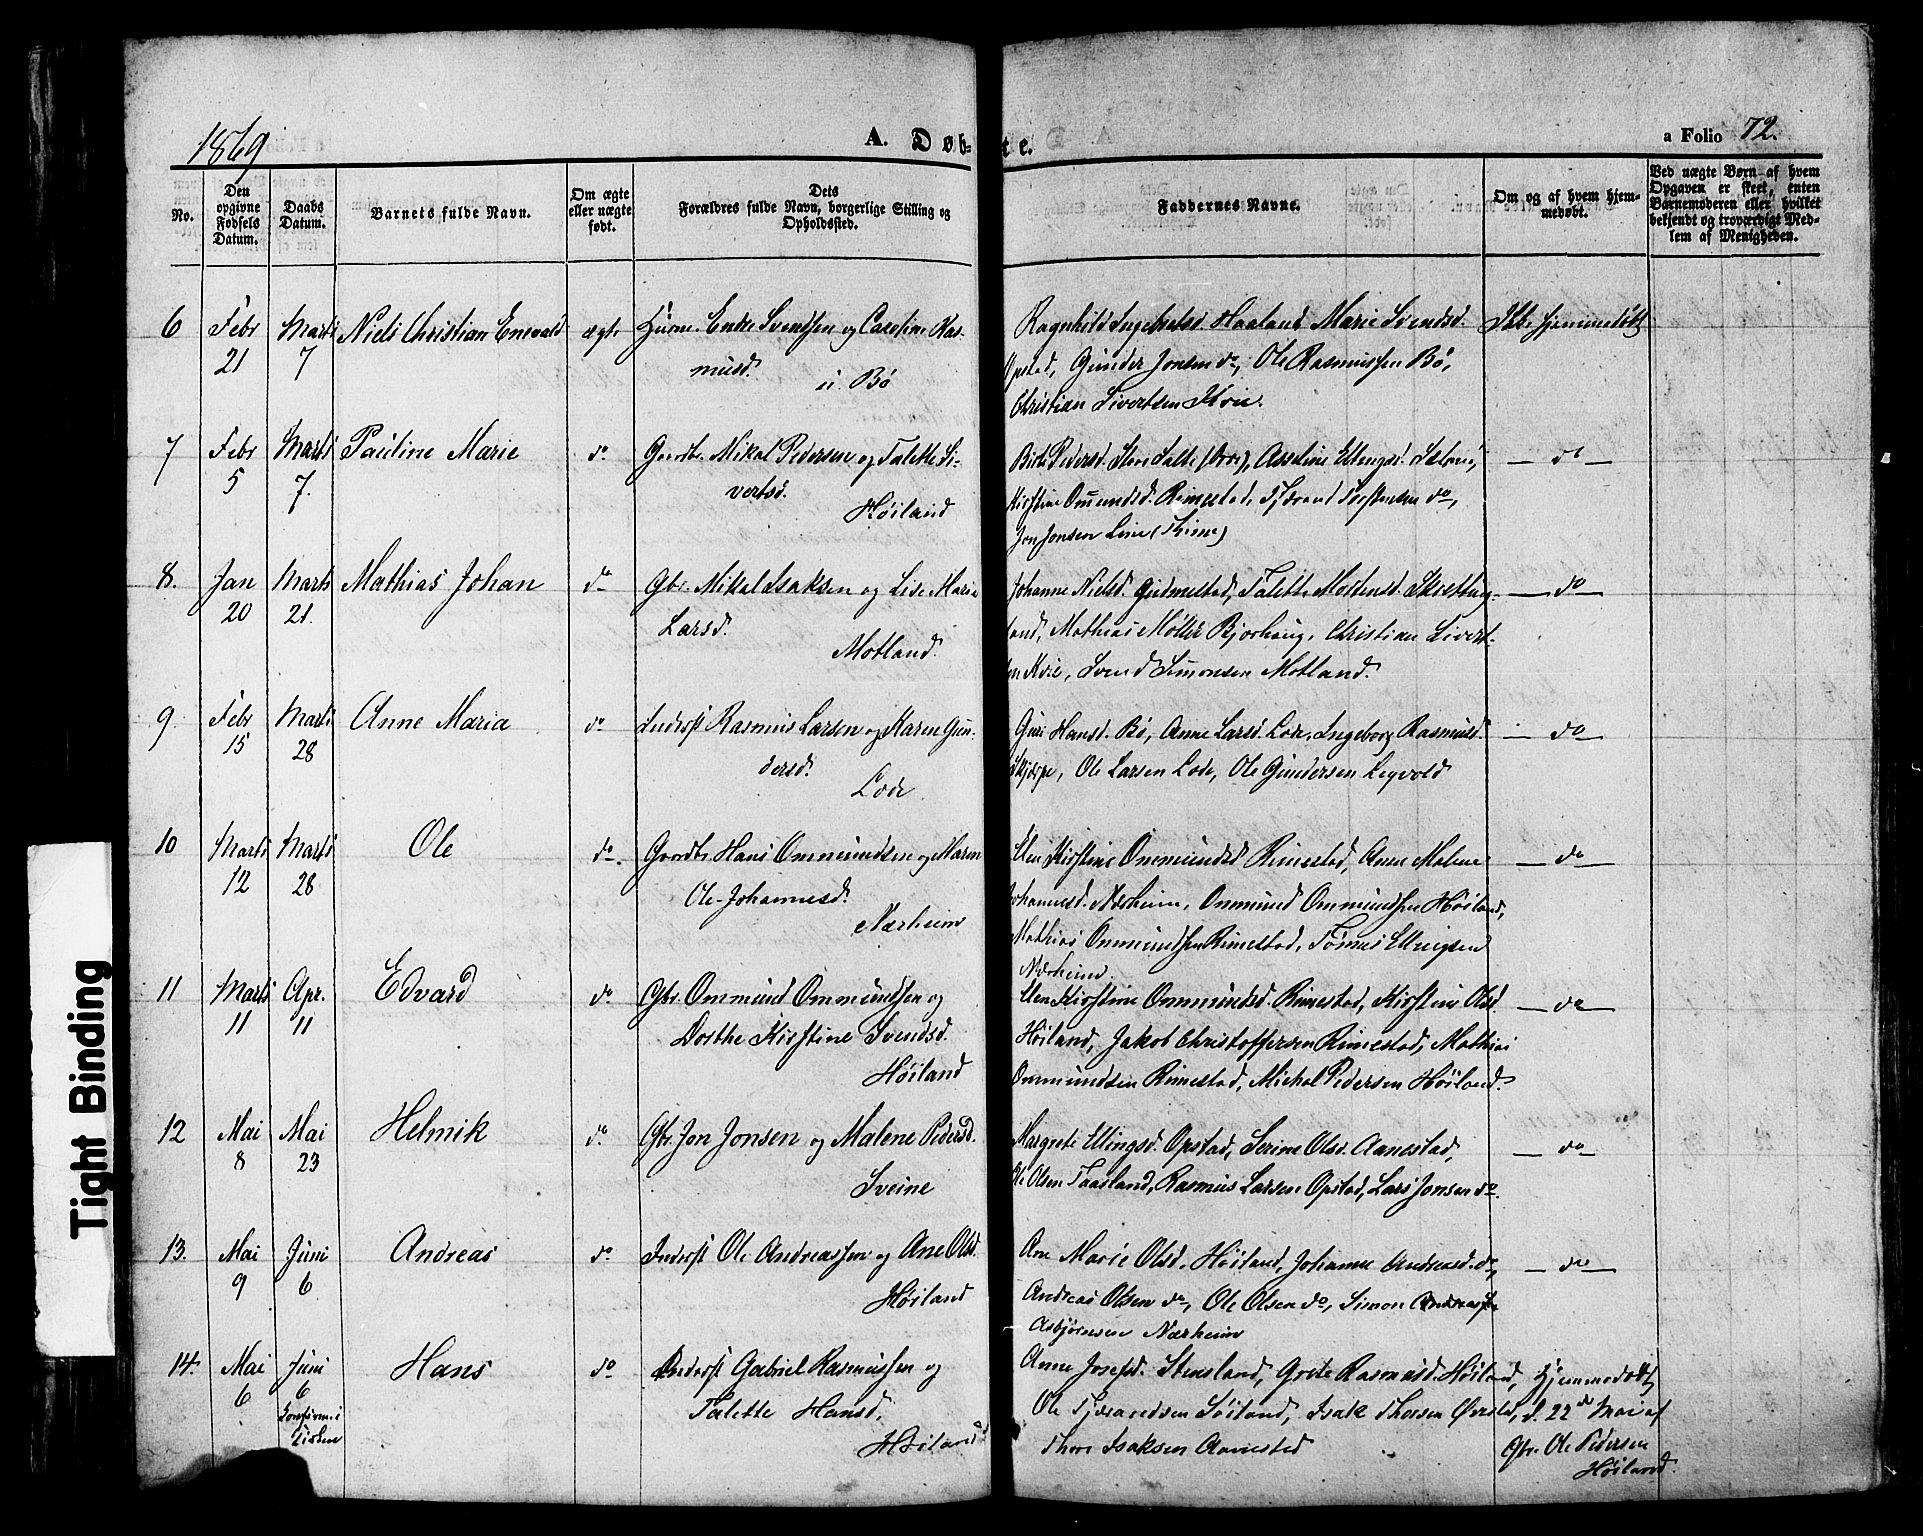 1869
A. Døb-
te.
a Folio 72.
No.
Den opgivne Fødsels Datum.
Daabs Datum.
Barnets fulde Navn.
Om ægte eller uægte født.
Dets Forældres fulde Navn, borgerlige Stilling og Opholdssted.
Faddernes Navne.
Om og af hvem hjemmedøbt.
Ved uægte Børn af hvem Opgaven er skeet, enten Barnemoderen eller hvilket bekjendt og troværdigt Medlem af Menigheden.
6 Febr 21 Marts 7 Niels Christian Enevald ægte Huusm. Endre Svendsen og Caroline Ras-
musd. Bø
Ragnhild Ingebretsd. Haaland, Marie Svendsd. Ikke hjemmedøbt
Opstad, Gunder Jonsen do, Ole Rasmussen Bø,
Christian Sivertsen Kvie.
7 Febr 5 Marts 7. Pauline Marie do Gaardbr. Mikal Pedersen og Talette Si-
vertsd.
Høiland
Birte Pedersd. Store Salte (Orre), Asseline Ellengsd. — do —
Kirstine Omundsd. Rimestad, Tjærand Torstensen do,
Jon Jonsen Line (Thime)
8. Jan 20 Marts 21. Mathias Johan do Gbr. Mikal Isaksen og Lise Marie
Larsd.
Motland.
Johanne Nielsd. Gudmestad, Talette Mortensd. Skretting- — do
land, Mathias Møller Bjorhaug, Christian Sivert-
sen Kvie, Svend Simonsen Motland.
9. Febr 15 Marts 28 Anne Maria do Inderst Rasmus Larsen og Karen Gun-
dersd.
Lode
Guri Hansd. Bø, Anne Larsd. Lode, Ingeborg Rasmusd. — do —
Skjærpe, Ole Larsen Lode, Ole Gundersen Legvold
10 Marts 12 Marts 28 Ole do. Gaardbr. Hans Ommundsen og Maren
Ole-Johannesd.
Nærheim
Elen Kirstine Ommundsd Rimestad, Anne Malene — do —
Johannesd. Nærheim, Ommund Ommundsen Høiland,
Mathias Ommundsen Rimestad, Tønnes Ellingsen
Nærheim.
11 Marts 11 Apr. 11 Edvard do Gbr. Ommund Ommundsen og
Dorthe Kirstine Svendsd.
Høiland
Elen Kirstine Ommundsd. Rimestad, Kirstine Olsd. — do —
Høiland, Jakob Christoffersen Rimestad, Mathias
Ommundsen Rimestad, Michal Pedersen Høiland.
12 Mai 8 Mai 23 Helmik do. Gbr. Jon Jonsen og Malene Pedersd.
Sveine
Margrete Ellingsd. Opstad, Serine Olsd. Aanestad, — do —
Ole Olsen Taasland, Rasmus Larsen Opstad, Lars Jonsen do.
13. Mai 9 Juni 6 Andreas do Inderst Ole Andreassen og Ane Olsd.
Høiland
Ane Marie Olsd. Høiland, Johanne Andreasd. do, — do —
Andreas Olsen do, Ole Olsen do, Simon
Asbjørnsen Nærheim
14. Mai 6 Juni 6 Hans do Inderst Gabriel Rasmussen og
Talette Hansd.
Høiland
Anne Josefsd. Stensland, Grete Rasmusd. Høiland, Hjemmedøbt
Ole Tjærandsen Søiland, Isak Thorsen d. 22de Mai af
Thore Isaksen Aanestad Gbr. Ole Pedersen
Høiland.
Tight Binding